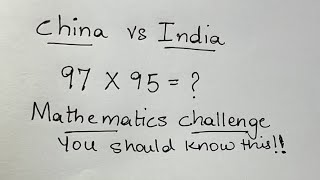 China vs India
97 X 95 = ?
Mathematics challenge
You should know this!!